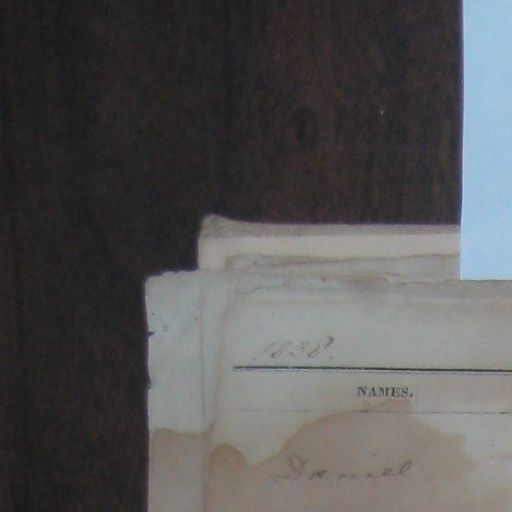 1838.
NAMES.
Daniel